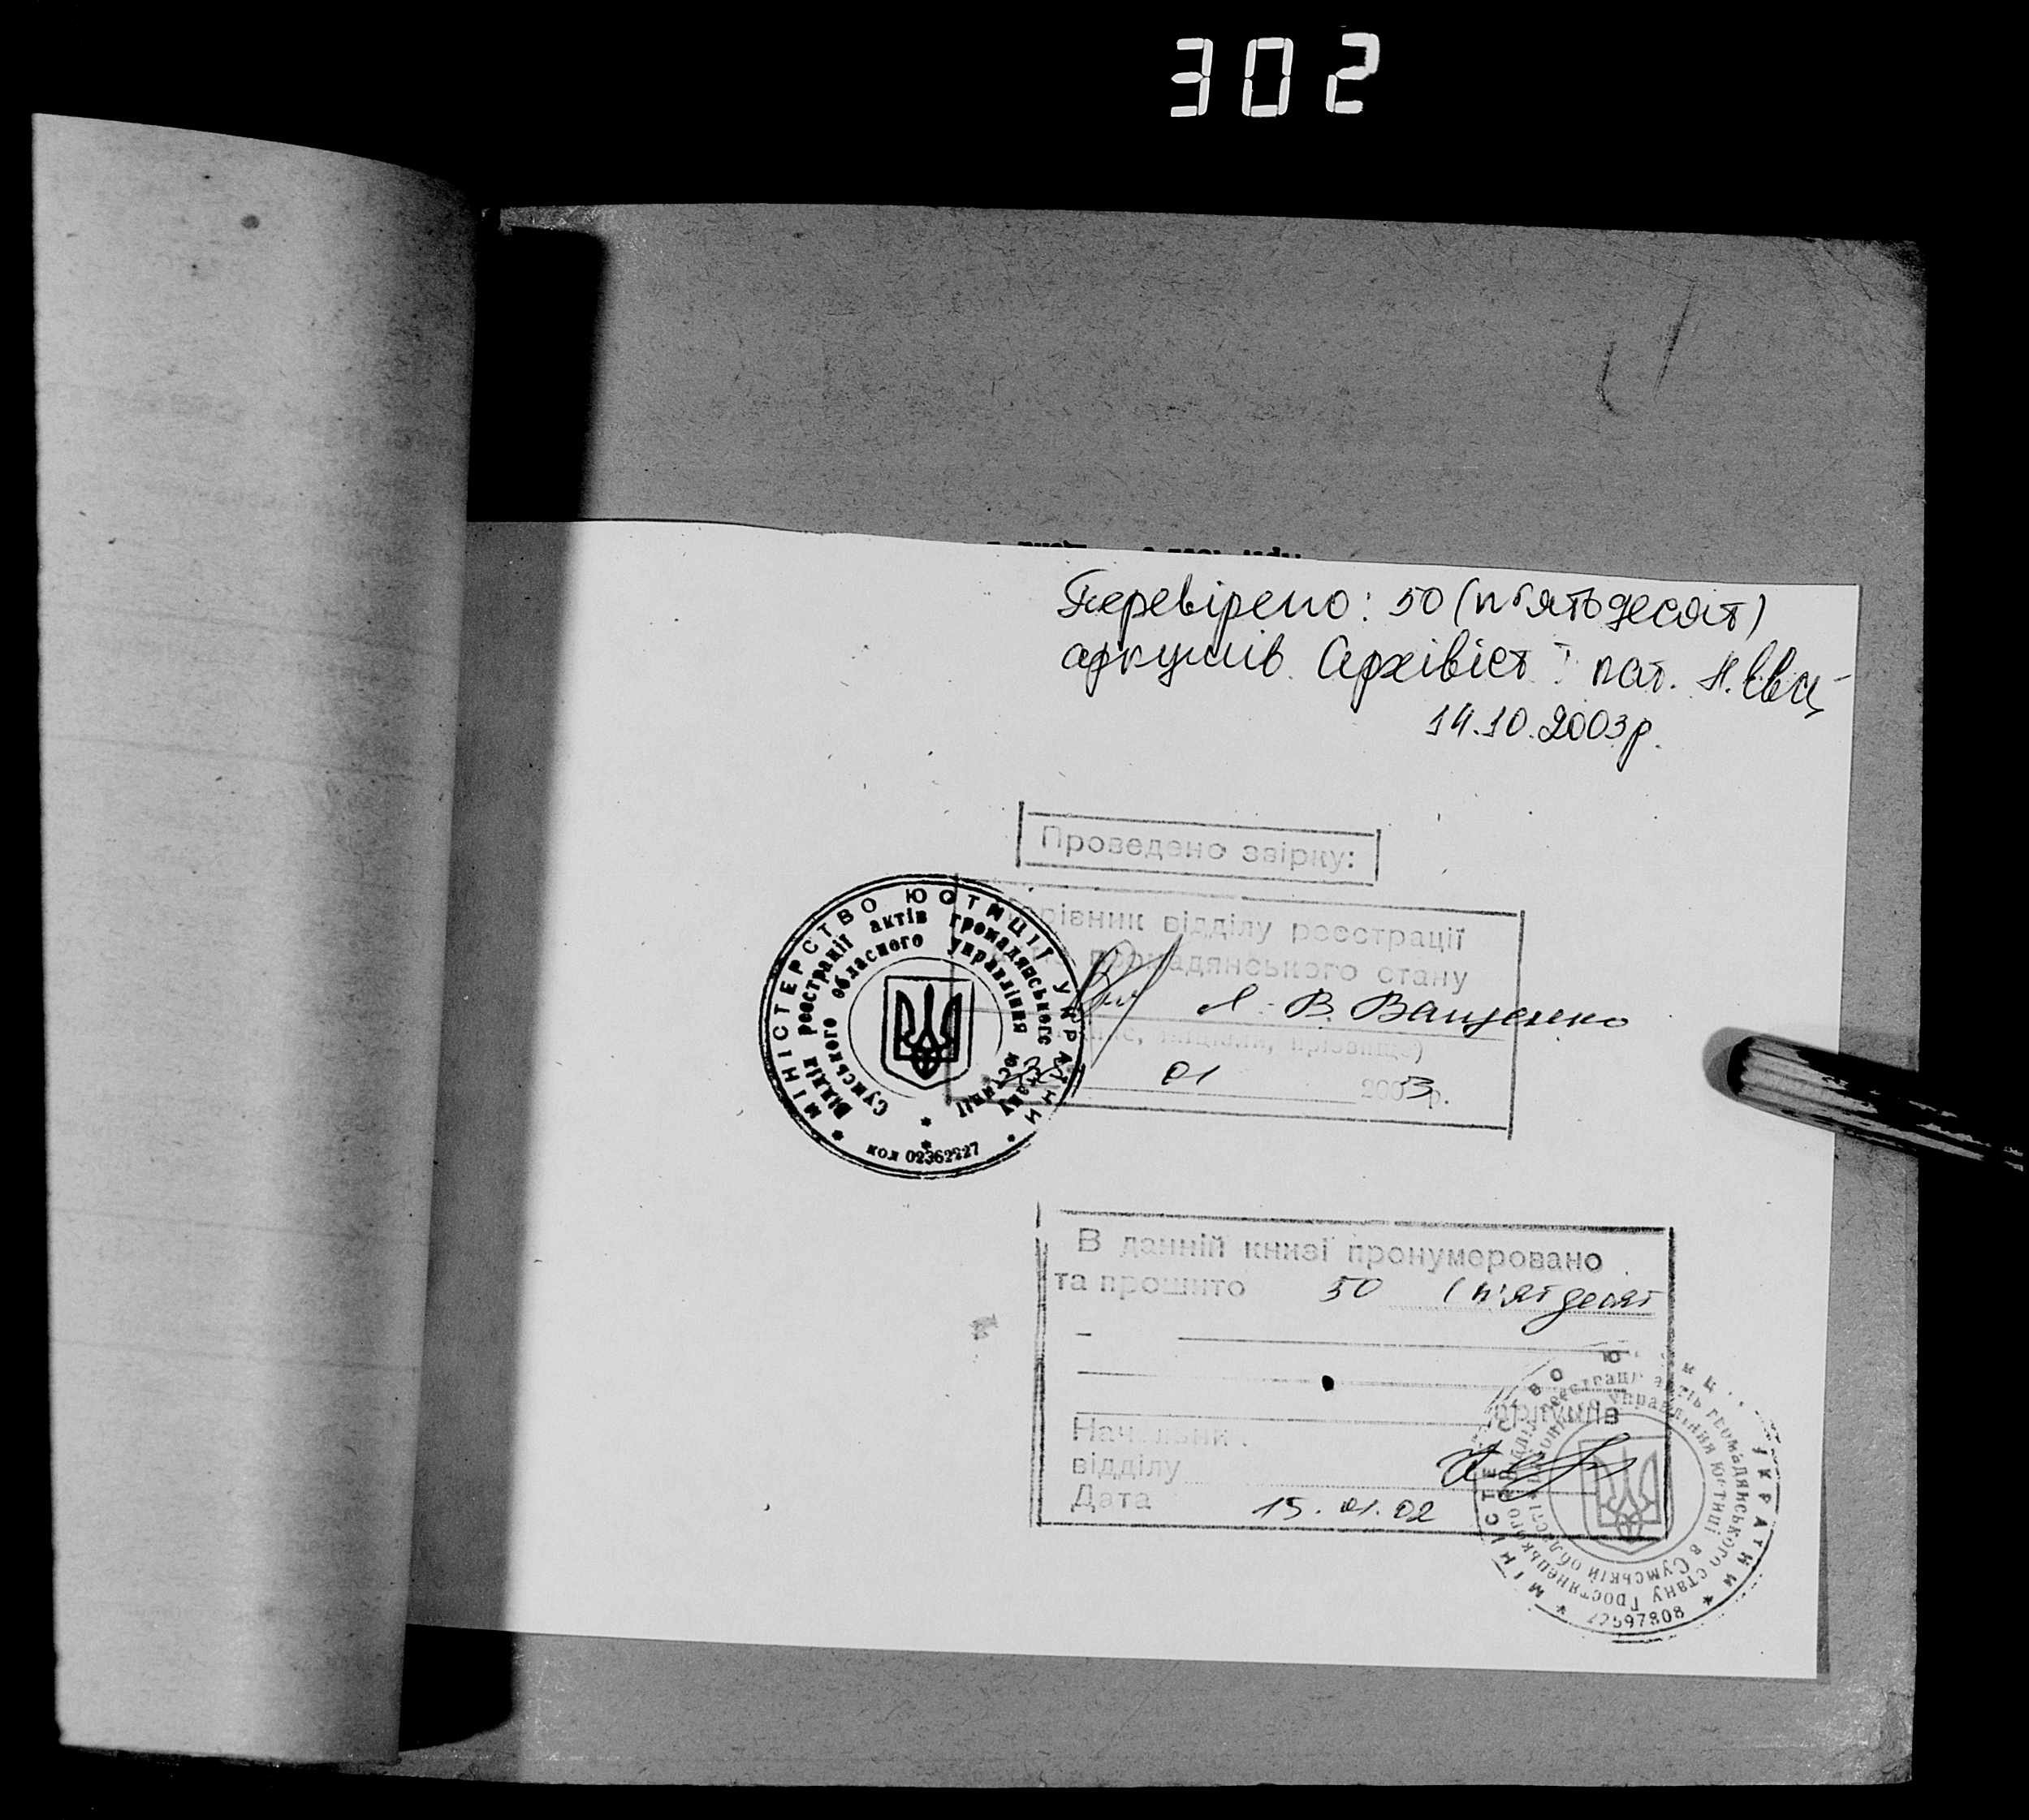 302
Перевірено: 50 (п'ятьдесят)
аркушів. Архівіст І кат.
14.10.2003р.
Проведено звірку:
Керівник відділу реєстрації
громадянського стану
Л. В. Ващенко
ініціали, прізвище)
01 2003р.
МІНІСТЕРСТВО ЮСТИЦІЇ УКРАЇНИ
Відділ реєстрації актів громадянського стану
Сумського обласного управління юстиції
код 02362227
В данній книзі пронумеровано
та прошито 50 (п'ятдесят
аркушів
Начальник
відділу
Дата 15.01.02
МІНІСТЕРСТВО Ю УКРАЇНИ
Відділ реєстрації актів громадянського стану Тростянецького
районного управління юстиції в Сумській області